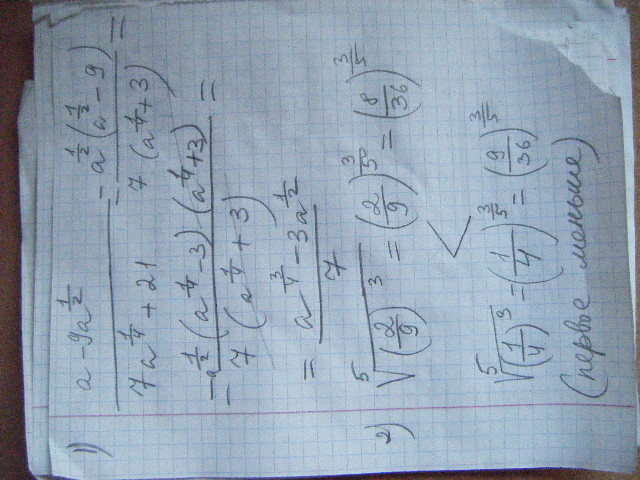 1) (a - 9a^(1/2))/(7a^(1/4) + 21) = (a^(1/2)(a^(1/2) - 9))/(7(a^(1/4) + 3)) =
= (a^(1/2)(a^(1/4) - 3)·(a^(1/4) + 3))/(7(a^(1/4) + 3)) =
= (a^(3/4) - 3a^(1/2))/7
2) ⁵√((2/9)^3) = (2/9)^(3/5) = (8/36)^(3/5)
<
⁵√((1/4)^3) = (1/4)^(3/5) = (9/36)^(3/5)
(первое меньше)